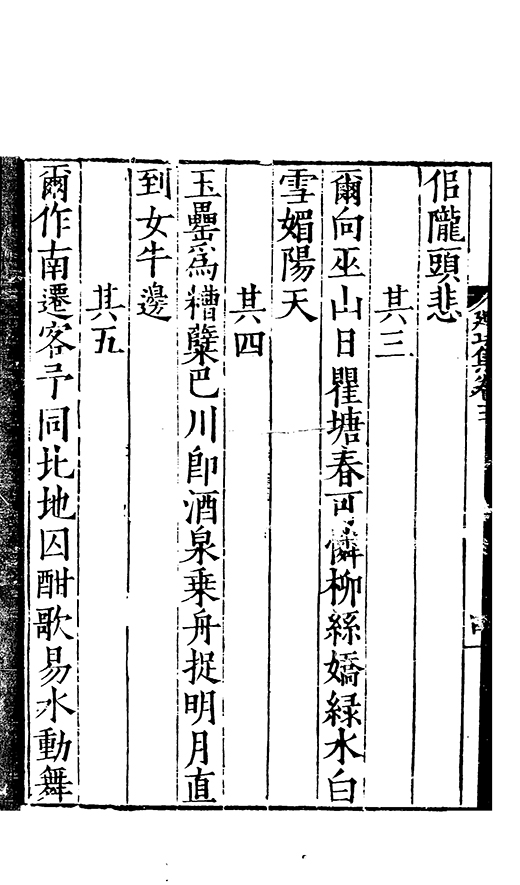 侣隴頭悲
其三
爾向巫山日瞿塘春可憐柳絲嬌緑水白
雪媚陽天
其四
玉罍爲糟蘖巴川即酒泉乗舟捉明月直
到女牛邊
其五
爾作南遷客予同北地囚酣歌易水動舞
集卷三